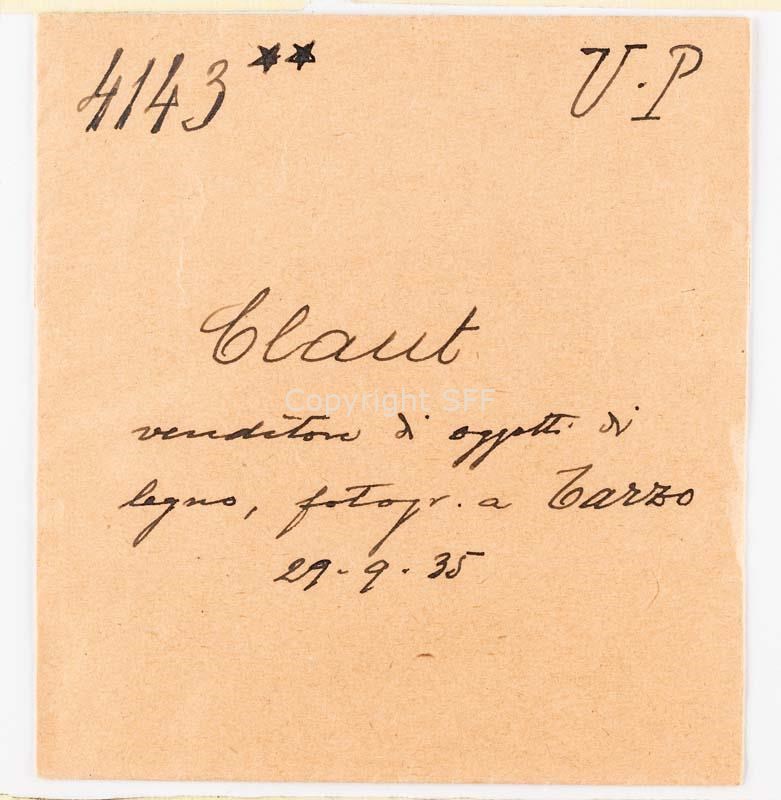 4143★★ U.P
Claut
Copyright SFF
venditore di oggetti di
legno, fotogr. a Tarzo
29-9-35